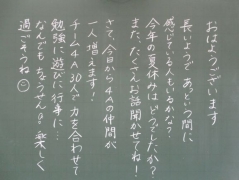 おはようございます
長いようであっという間に
感じている人もいるかな？
今年の夏休みはどうでしたか？
また、たくさんお話聞かせてね！
さて、今日から4Aの仲間が
一人増えます！
チーム4A30人で力を合わせて
勉強に遊びに行事に…
なんでもちょうせん。楽しく
過ごそうね☺